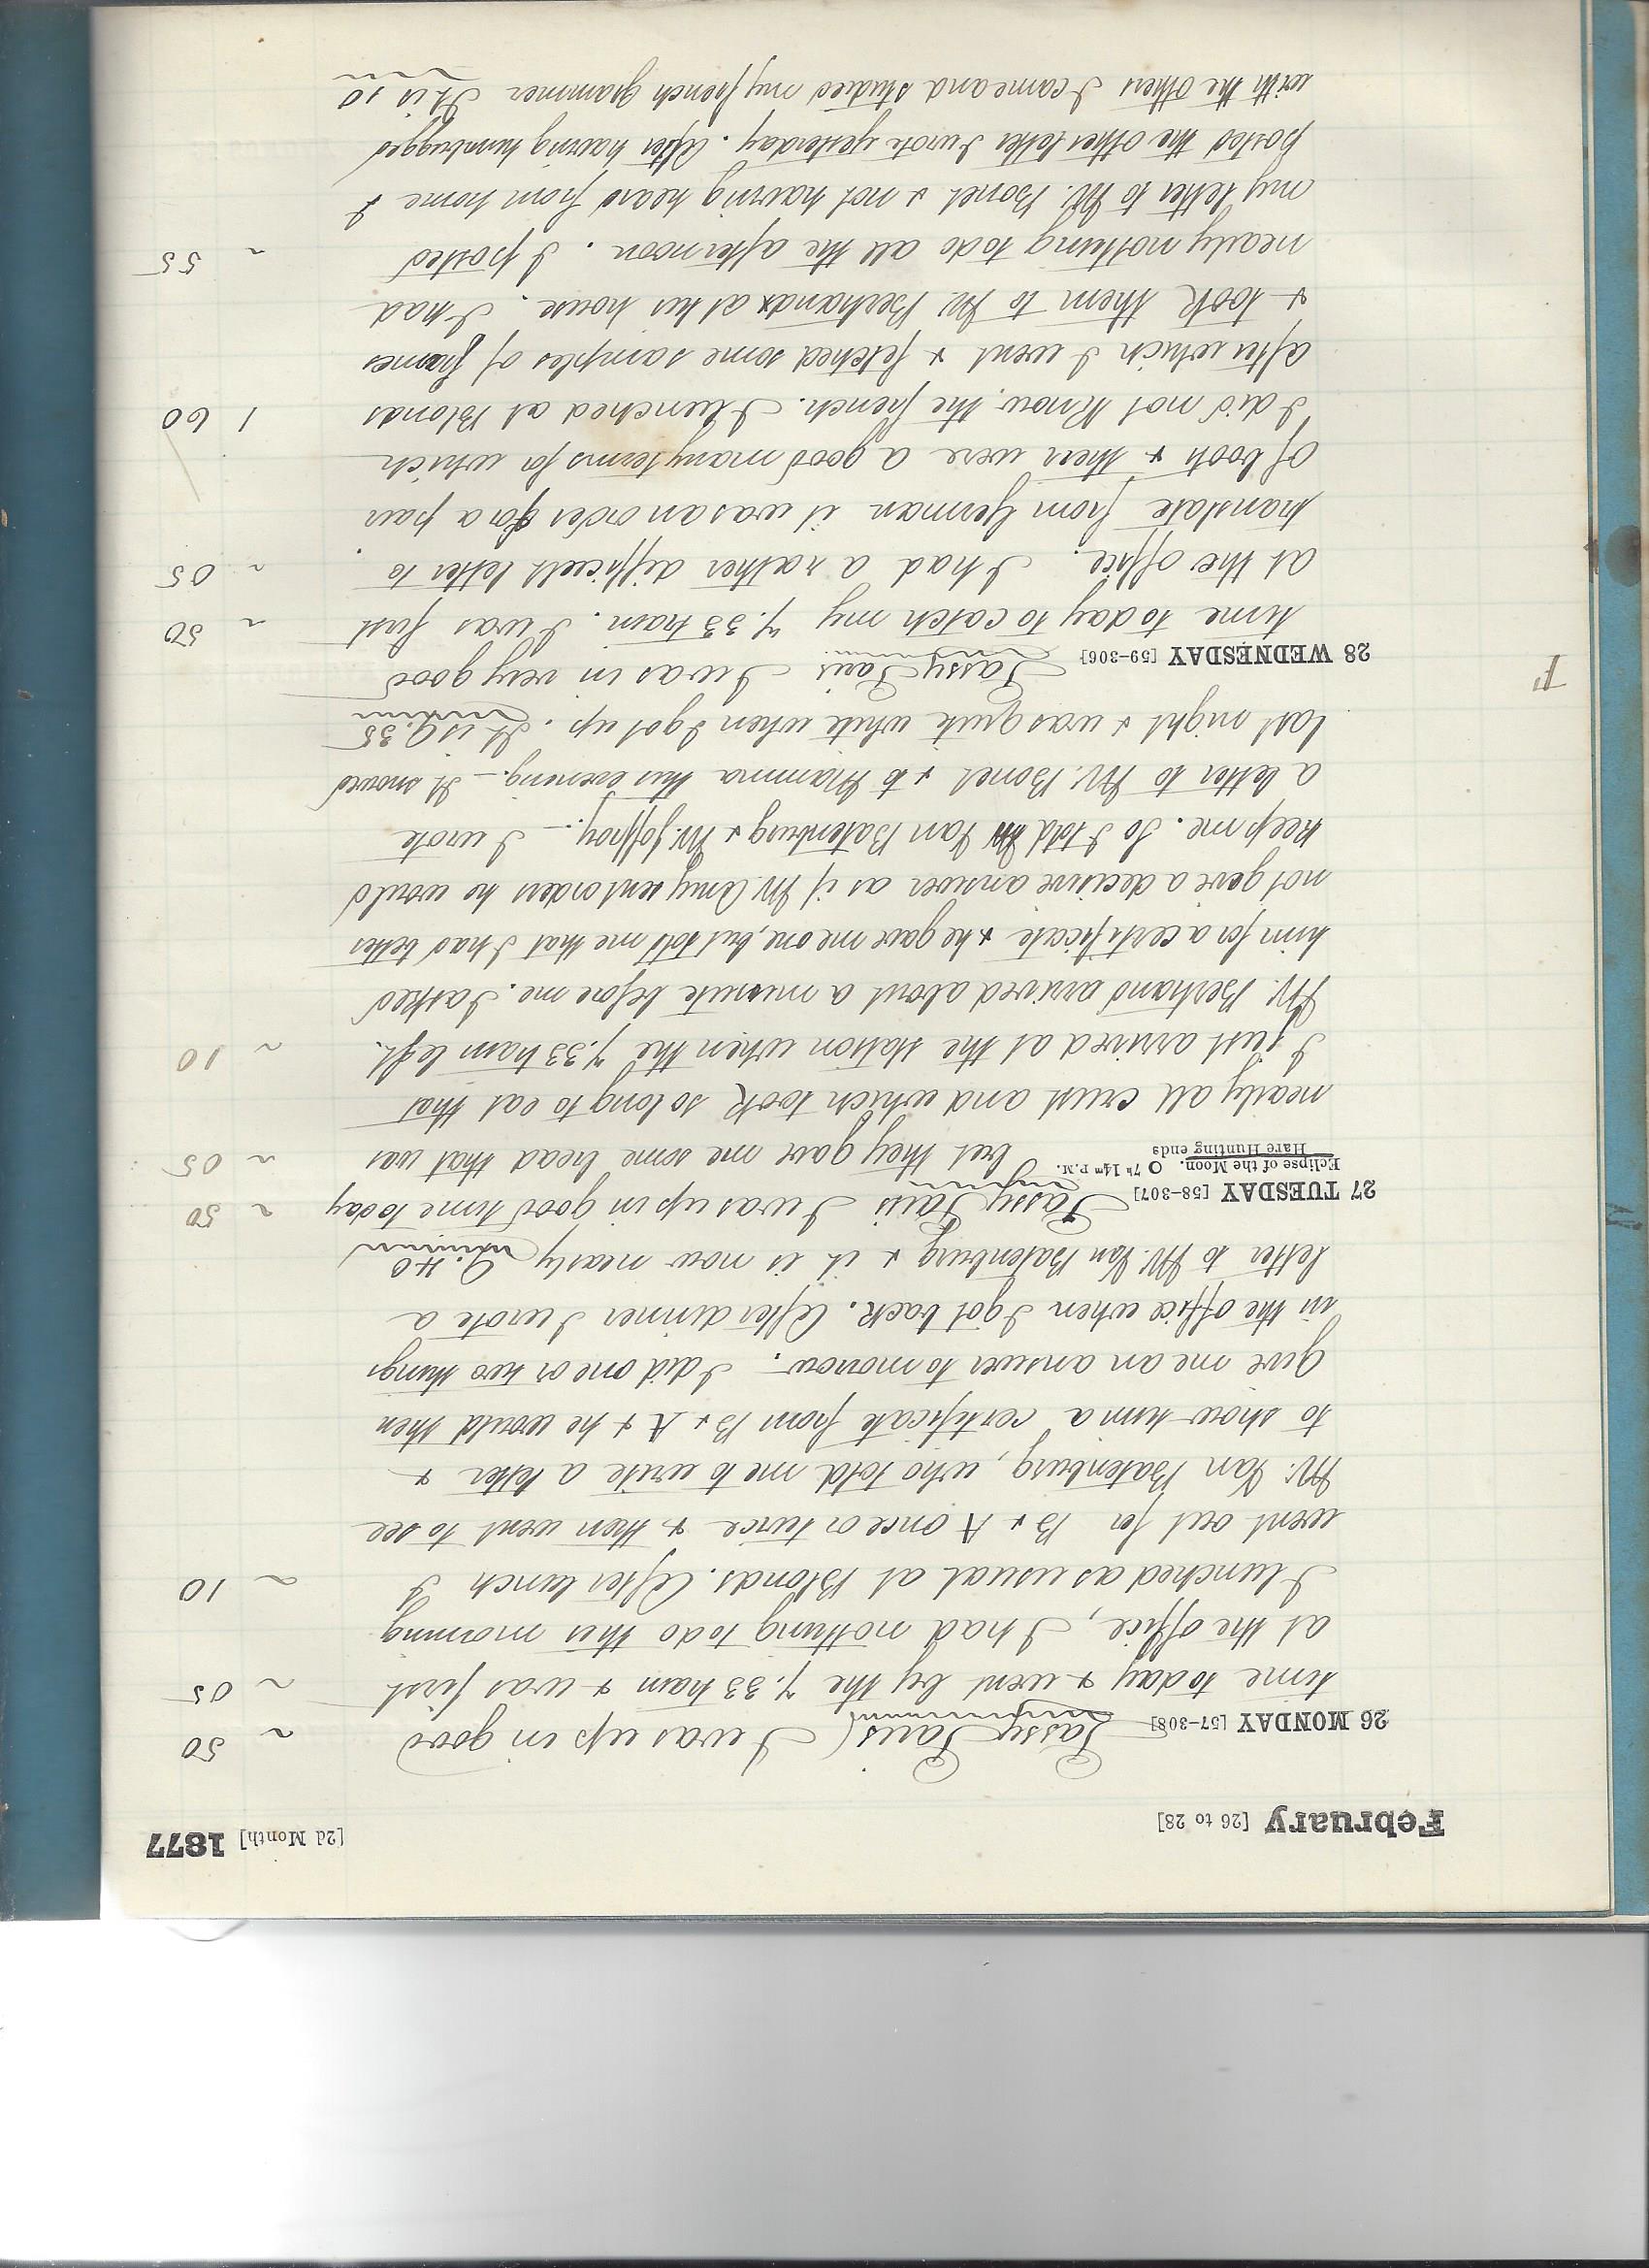 February [26 to 28] [2d Month] 1877
26 MONDAY [57-308] Passy Paris I was up in good ~ 50
time today & went by the 7.33 train & was first ~ 05
at the office, I had nothing to do this morning
I lunched as usual at Blonds. After lunch I ~ 10
went out for B & A once or twice & then went to see
Mr. Van Batenburg, who told me to write a letter &
to show him a certificate from B & A & he would then
give me an answer tomorrow. I did one or two things
in the office when I got back. After dinner I wrote a
letter to Mr. Van Batenburg & it is now nearly 9.40
27 TUESDAY [58-307] Passy Paris I was up in good time today ~ 50
Eclipse of the Moon. 7h 14m P.M. but they gave me some bread that was ~ 05
Hare Hunting ends
nearly all crust and which took so long to eat that
I just arrived at the station when the 7.33 train left. ~ 10
Mr. Bertrand arrived about a minute before me. I asked
him for a certificate & he gave me one, but told me that I had better
not give a decisive answer as if Mr. Amy sent orders he would
keep me. So I told Mr Van Batenburg & Mr. Joffroy. — I wrote
a letter to Mr. Bonet & to Mamma this evening. — It snowed
last night & was quite white when I got up. It is 9.35
28 WEDNESDAY [59-306] Passy Paris I was in very good
time today to catch my 7.33 train. I was first ~ 50
at the office. I had a rather difficult letter to ~ 05
translate from German it was an order for a pair
of boots & there were a good many terms for which
I did not know the french. I lunched at Blonds 1 60
after which I went & fetched some samples of frames
& took them to Mr Bertrand at his house. I had
nearly nothing to do all the afternoon. I posted ~ 55
my letter to Mr. Bonet & not having heard from home I
posted the other letter I wrote yesterday. After having humbugged
with the others I came and studied my french grammer It is 10